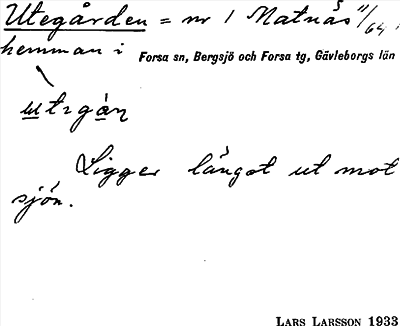 Utegården = nr 1 Matnäs 11/64
hemman i Forsa sn, Bergsjö och Forsa tg, Gävleborgs län
utrgàn
Ligger långst ut mot
sjön.
LARS LARSSON 1933